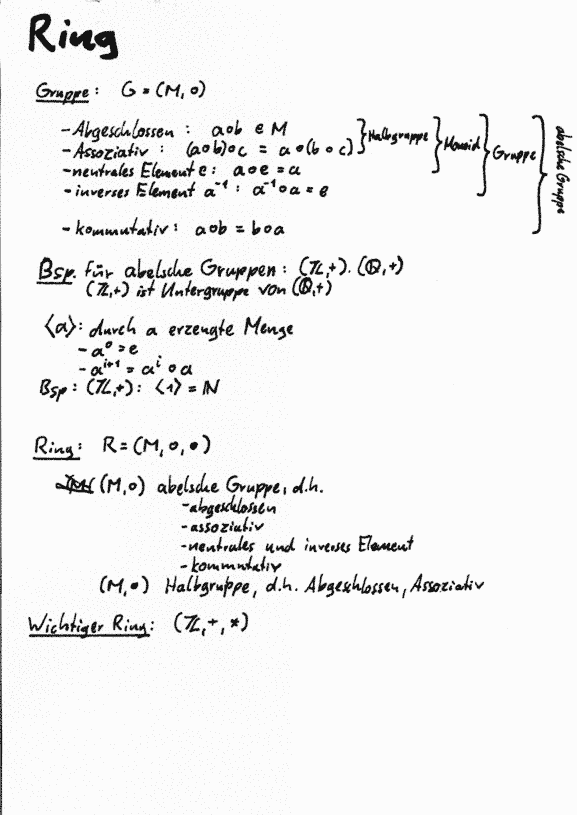 Ring
Gruppe: G = (M, ∘)
- Abgeschlossen: a∘b ∈ M
- Assoziativ: (a∘b)∘c = a∘(b∘c) } Halbgruppe } Monoid } Gruppe } abelsche Gruppe
- neutrales Element e: a∘e = a
- inverses Element a⁻¹: a⁻¹∘a = e
- kommutativ: a∘b = b∘a
Bsp. für abelsche Gruppen: (ℤ,+). (ℚ,+)
(ℤ,+) ist Untergruppe von (ℚ,+)
⟨a⟩: durch a erzeugte Menge
- a⁰ = e
- aⁱ⁺¹ = aⁱ ∘ a
Bsp: (ℤ,+): ⟨1⟩ = ℕ
Ring: R = (M, ∘, •)
(M,∘) abelsche Gruppe, d.h.
- abgeschlossen
- assoziativ
- neutrales und inverses Element
- kommutativ
(M,•) Halbgruppe, d.h. Abgeschlossen, Assoziativ
Wichtiger Ring: (ℤ,+,*)